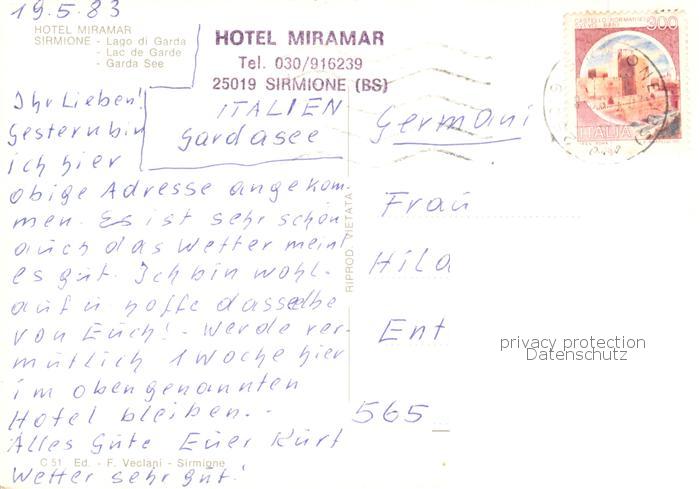 19.5.83
HOTEL MIRAMAR
SIRMIONE - Lago di Garda
- Lac de Garde
- Garda See
HOTEL MIRAMAR
Tel. 030/916239
25019 SIRMIONE (BS)
ITALIEN
Gardasee
Ihr Lieben!
Gestern bin
ich hier
obige Adresse angekom-
men. Es ist sehr schön
auch das Wetter meint
es gut. Ich bin wohl-
auf u hoffe dasselbe
von Euch! - Werde ver-
mutlich 1 Woche hier
im obengenannten
Hotel bleiben. -
Alles Gute Euer Kurt
Wetter sehr gut!
C 51 Ed. - F. Veclani - Sirmione
RIPROD. VIETATA
300
ITALIA
Germani
Frau
Hild
Ent
565
privacy protection
Datenschutz